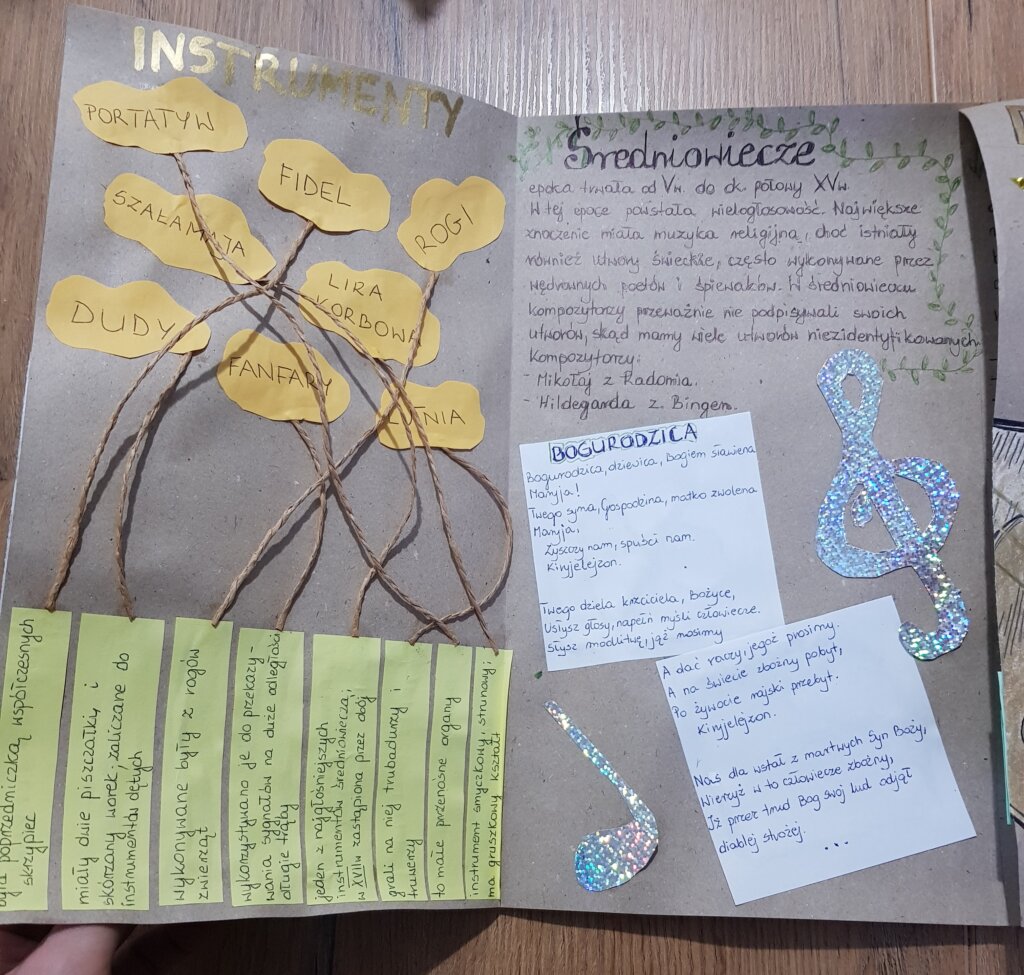 INSTRUMENTY
PORTATYW
FIDEL
ROGI
SZAŁAMAJA
LIRA
KORBOWA
DUDY
FANFARY
LUTNIA
była poprzedniczką współczesnych
skrzypiec
miały dwie piszczałki, i
skórzany worek, zaliczane do
instrumentów dętych
wykonywane były z rogów
zwierząt
wykorzystywano je do przekazy-
wania sygnałów na duże odległości;
długie trąby
jeden z najgłośniejszych
instrumentów średniowiecza,
w XVIIw zastąpiona przez obój
grali na niej trubadurzy i
truwerzy
to małe przenośne organy
instrument smyczkowy, strunowy;
ma gruszkowy kształt
Średniowiecze
epoka trwała od Vw. do ok. połowy XVw.
W tej epoce powstała wielogłosowość. Największe
znaczenie miała muzyka religijna, choć istniały
również utwory świeckie, często wykonywane przez
wędrownych poetów i śpiewaków. W średniowieczu
kompozytorzy przeważnie nie podpisywali swoich
utworów, skąd mamy wiele utworów niezidentyfikowanych.
Kompozytorzy:
- Mikołaj z Radomia.
- Hildegarda z Bingen.
BOGURODZICA
Bogurodzica, dziewica, Bogiem sławiena
Maryja!
Twego syna, Gospodzina, matko zwolena
Maryja,
Zyszczy nam, spuści nam.
Kiryjelejzon.
Twego dzieła krzciciela, Bożyce,
Usłysz głosy, napełń myśli człowiecze.
Słysz modlitwę, jąż nosimy
A dać raczy, jegoż prosimy.
A na świecie zbożny pobyt,
Po żywocie rajski przebyt.
Kiryjelejzon.
Nas dla wstał z martwych Syn Boży,
Wierzyż w to człowiecze zbożny,
Iż przez trud Bog swoj lud odjął
diablej strożej.
...